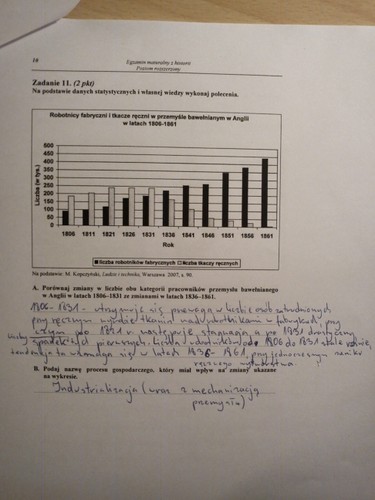 16
Egzamin maturalny z historii
Poziom rozszerzony
Zadanie 11. (2 pkt)
Na podstawie danych statystycznych i własnej wiedzy wykonaj polecenia.
Robotnicy fabryczni i tkacze ręczni w przemyśle bawełnianym w Anglii
w latach 1806-1861
Liczba (w tys.)
500
450
400
350
300
250
200
150
100
50
0
1806 1811 1816 1821 1826 1831 1836 1841 1846 1851 1856 1861
Rok
liczba robotników fabrycznych liczba tkaczy ręcznych
Na podstawie: M. Kopczyński, Ludzie i technika, Warszawa 2007, s. 90.
A. Porównaj zmiany w liczbie obu kategorii pracowników przemysłu bawełnianego
w Anglii w latach 1806–1831 ze zmianami w latach 1836–1861.
1806-1831 - utrzymuje się przewaga w liczbie osób zatrudnionych
przy ręcznym nad robotnikami w fabrykach, przy
czym po 1821 r. następuje stagnacja, a po 1831 drastyczny
spadek tych pierwszych. Liczba robotników od 1806 do 1831 stale rośnie,
tendencja ta wzmaga się w latach 1836-1861, przy jednoczesnym zaniku
ręcznego
B. Podaj nazwę procesu gospodarczego, który miał wpływ na zmiany ukazane
na wykresie.
Industrializacja (wraz z mechanizacją
przemysłu)